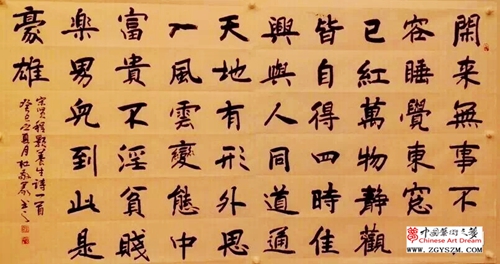 閑来無事不
容睡覺東窓
已紅萬物靜觀
皆自得四時佳
興與人同道通
天地有形外思
入風雲變態中
富貴不淫貧賤
樂男兒到此是
豪雄
宋賢程顥養生詩一首
癸卯之夏月杜
中国艺术之梦
Chinese Art Dream
www.ZGYSZM.com